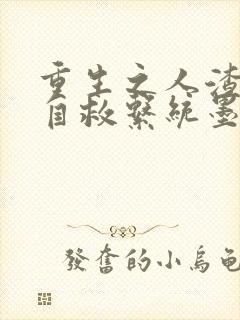 重生之人渣
自救系統墨
發奮的小烏龜